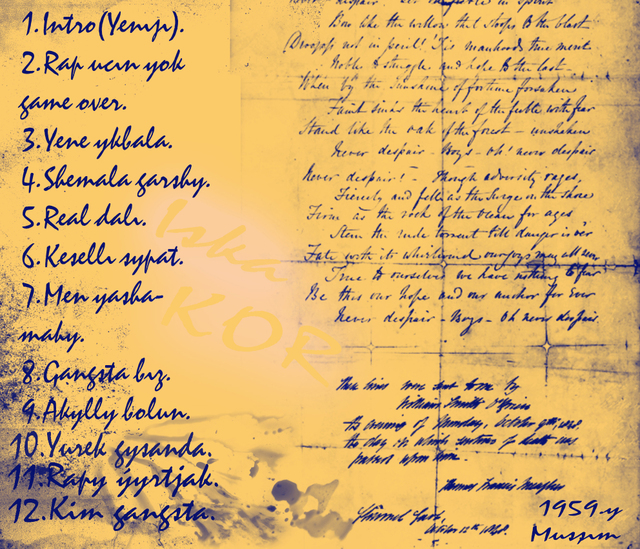 1.Intro(Yenıjı).
2.Rap ucın yok
game over.
3.Yene ykbala.
4.Shemala garshy.
5.Real dalı.
6.Kesellı sypat.
7.Men yasha-
mahy.
8.Gangsta bız.
9.Akylly bolun.
10.Yurek gysanda.
11.Rapy ýyrtjak.
12.Kim gangsta.
Iska
KOR
Never despair
Bow like the willow that stoops to the blast
Droop not in peril! 'Tis manhood's true
Noble to struggle and hold to the last
When by the sunshine of fortune forsaken
Faint sinks the heart of the feeble with fear
Stand like the oak of the forest - unshaken
Never despair - Boys - oh! never despair
Never despair! - Though adversity rages,
Fiercely and fell as the surge on the shore
Firm as the rock of the ocean for ages
Stem the rude torrent till danger is o'er
Fate with its whirlwind our joys may all
True to ourselves we have nothing to fear
Be this our hope and our anchor for ever
Never despair - Boys - oh never despair
These lines were sent to me by
William Smith O'Brien
the evening of Monday, October 9th,
the day on which sentence of death was
passed upon him.
Thomas Francis Meagher
October 12th 1848.
1959-y
Mussım